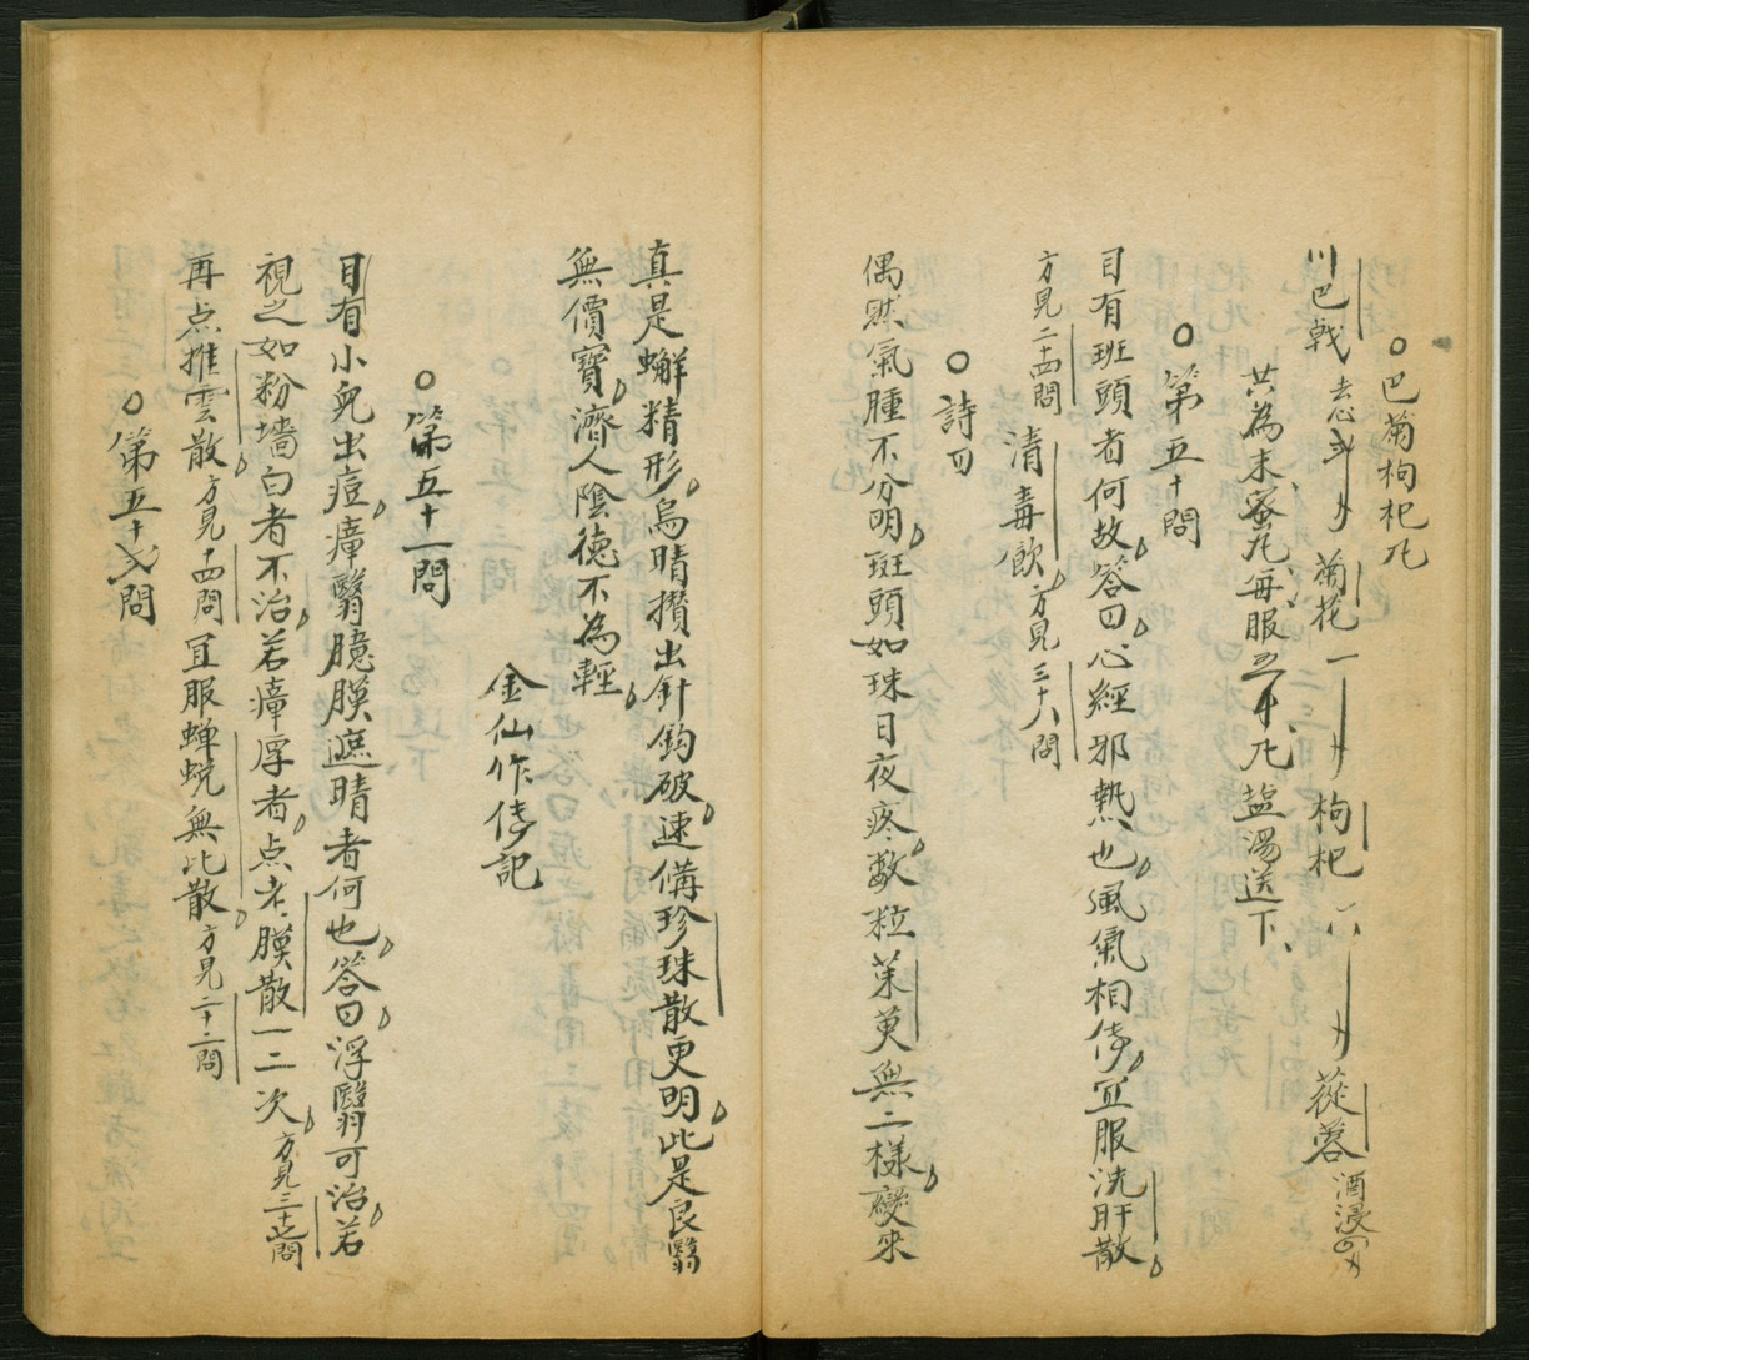 ○巴菊枸杞丸
川巴戟去心 菊花一 枸杞 蓯蓉酒浸
共為末蜜丸每服五十丸盐湯送下
○第五十問
目有班頭者何故答曰心經邪熱也風氣相侵宜服洗肝散
方見二十四問 清毒飲方見三十八問
○詩曰
偶然氣腫不分明斑頭如珠日夜疼数粒茱萸無二樣變來
真是蠏精形烏睛攢出針鈎破速備珍珠散更明此是良醫
無價寶濟人陰德不為輕
金仙作傳記
○第五十一問
目有小兒出痘瘴翳臆膜遮睛者何也答曰浮翳可治若
視之如粉墻白者不治若瘴厚者点膜散一二次方見三十問
再点推雲散方見十四問宜服蝉蛻無比散方見二十二問
○第五十弍問